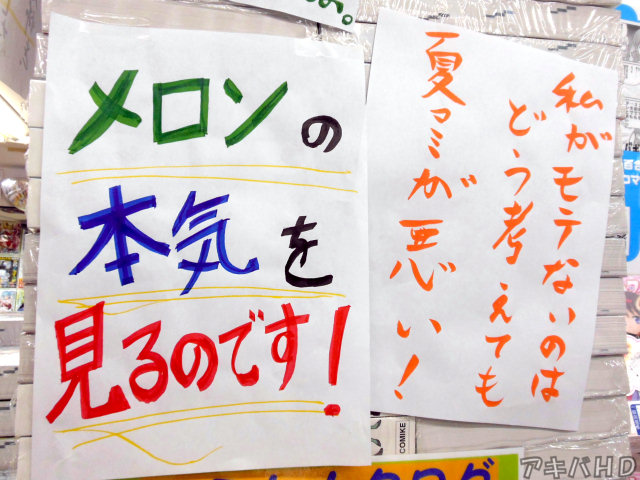 メロンの
本気を
見るのです!
私がモテないのは
どう考えても
夏コミが悪い!
COMIKE
カタログ
アキバHD